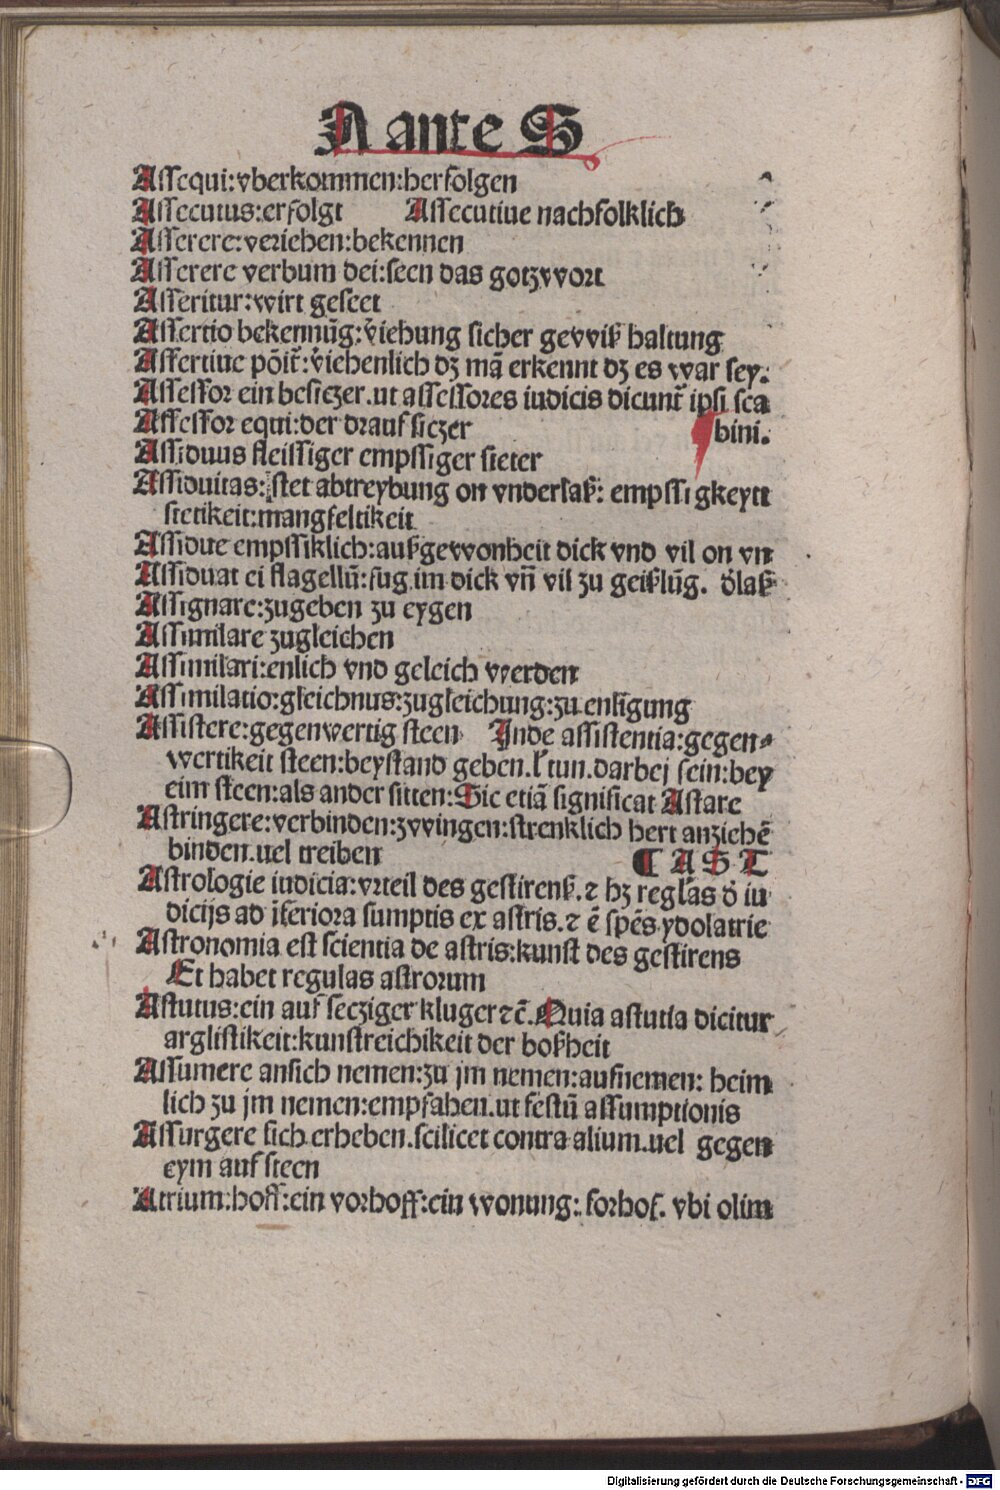 A ante S
Assequi:vberkommen:herfolgen
Assecutus:erfolgt Assecutiue nachfolklich
Asserere:veriehen:bekennen
Asserere verbum dei:seen das gotzwort
Asseritur:wirt geseet
Assertio bekennūg:v̄iehung sicher gewiß haltung
Assertiue põit̄:v̄iehenlich dz mā erkennt dz es war sey.
Assessor ein besiczer.ut assessores iudicis dicunt̄ ipsi sca
Assessor equi:der drauf siczer bini.
Assiduus fleissiger empssiger sieter
Assiduitas:stet abtreybung on vnderlaß: empssigkeytt
stetikeit:mangfeltikeit
Assidue empssiklich:außgewonheit dick vnd vil on vn
Assiduat ei flagellū:fug im dick vn̄ vil zu geißlūg. d̄laß
Assignare:zugeben zu eygen
Assimilare zugleichen
Assimilari:enlich vnd geleich werden
Assimilatio:gleichnus:zugleichung:zu enligung
Assistere:gegenwertig steen Inde assistentia:gegen⸗
wertikeit steen:beystand geben.l̄ tun.darbej sein:bey
eim steen:als ander sitten:Sic etiā significat Astare
Astringere:verbinden:zwingen:strenklich hert anziehē
binden.uel treiben ¶ A S T
Astrologie iudicia:vrteil des gestirenß.⁊ hz reglās d̄ iu
dicijs ad īferiora sumptis ex astris.⁊ ē spēs ydolatrie
Astronomia est scientia de astris:kunst des gestirens
Et habet regulas astrorum
Astutus:ein auf secziger kluger ⁊c̄.Quia astutia dicitur
arglistikeit:kunstreichikeit der boßheit
Assumere ansich nemen:zu jm nemen:aufnemen: heim
lich zu jm nemen:empfahen.ut festū assumptionis
Assurgere sich erheben.scilicet contra alium.uel gegen
eym auf steen
Atrium:hoff:ein vorhoff:ein wonung:.forhof. vbi olim
Digitalisierung gefördert durch die Deutsche Forschungsgemeinschaft - DFG